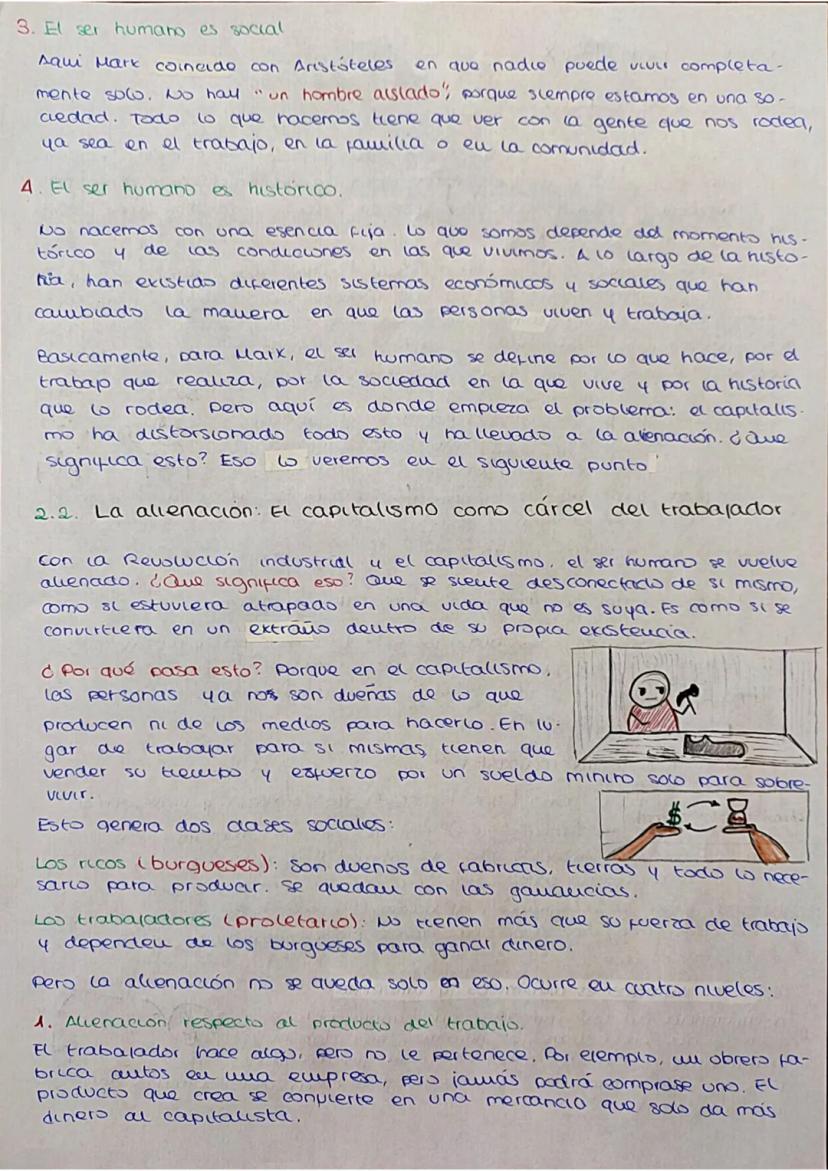 3. El ser humano es social
Aqui Marx coincide con Aristóteles en que nadie puede vivir completa-
mente solo. No hay "un hombre aislado", porque siempre estamos en una so-
ciedad. Todo lo que hacemos tiene que ver con la gente que nos rodea,
ya sea en el trabajo, en la familia o en la comunidad.
4. El ser humano es histórico.
No nacemos con una esencia fija. Lo que somos depende del momento his-
tórico y de las condiciones en las que vivimos. A lo largo de la histo-
ria, han existido diferentes sistemas económicos y sociales que han
cambiado la manera en que las personas viven y trabaja.
Basicamente, para Marx, el ser humano se define por lo que hace, por el
trabajo que realiza, por la sociedad en la que vive y por la historia
que lo rodea. Pero aquí es donde empieza el problema: el capitalis-
mo ha distorsionado todo esto y ha llevado a la alienación. ¿Que
significa esto? Eso lo veremos en el siguiente punto
2.2. La alienación: El capitalismo como cárcel del trabajador
Con la Revolución industrial y el capitalismo, el ser humano se vuelve
alienado. ¿Que significa eso? Que se siente desconectado de si mismo,
como si estuviera atrapado en una vida que no es suya. Es como si se
convirtiera en un extraño dentro de su propia existencia.
¿Por qué pasa esto? Porque en el capitalismo,
las personas ya no son dueñas de lo que
producen ni de los medios para hacerlo. En lu-
gar de trabajar para si mismas, tienen que
vender su tiempo y esfuerzo por un sueldo minimo solo para sobre-
vivir.
$
Esto genera dos clases sociales:
Los ricos (burgueses): Son duenos de fabricas, tierras y todo lo nece-
sario para producir. Se quedan con las ganancias.
Los trabajadores (proletario): No tienen más que su fuerza de trabajo
y dependen de los burgueses para ganar dinero.
Pero la alienación no se queda solo en eso. Ocurre en cuatro niveles:
1. Alienación respecto al producto del trabajo.
El trabajador hace algo, pero no le pertenece. Por ejemplo, un obrero fa-
brica autos en una empresa, pero jamás podrá comprase uno. El
producto que crea se convierte en una mercancia que solo da más
dinero al capitalista.